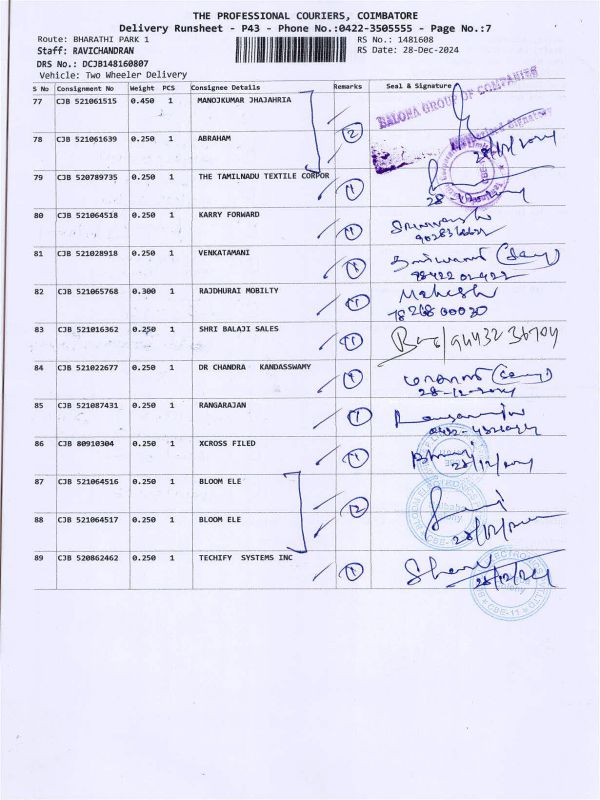 THE PROFESSIONAL COURIERS, COIMBATORE
Delivery Runsheet - P43 - Phone No.:0422-3505555 - Page No.:7
Route: BHARATHI PARK 1 RS No.: 1481608
Staff: RAVICHANDRAN RS Date: 28-Dec-2024
DRS No.: DCJB148160807
Vehicle: Two Wheeler Delivery
S No Consignment No Weight PCS Consignee Details Remarks Seal & Signature
77 CJB 521061515 0.450 1 MANOJKUMAR JHAJAHRIA
BALOHA GROUP OF COMPANIES
78 CJB 521061639 0.250 1 ABRAHAM 2 28/12/2024
79 CJB 520789735 0.250 1 THE TAMILNADU TEXTILE CORPOR 1
80 CJB 521064518 0.250 1 KARRY FORWARD 1
81 CJB 521028918 0.250 1 VENKATAMANI 1
82 CJB 521065768 0.300 1 RAJDHURAI MOBILTY 1 Mahesh
78268 00030
83 CJB 521016362 0.250 1 SHRI BALAJI SALES 1
84 CJB 521022677 0.250 1 DR CHANDRA KANDASSWAMY 1
28-12-2024
85 CJB 521087431 0.250 1 RANGARAJAN 1
86 CJB 80910304 0.250 1 XCROSS FILED 1
28/12/2024
87 CJB 521064516 0.250 1 BLOOM ELE 2
88 CJB 521064517 0.250 1 BLOOM ELE
28/12/2024
89 CJB 520862462 0.250 1 TECHIFY SYSTEMS INC 1
28/12/24